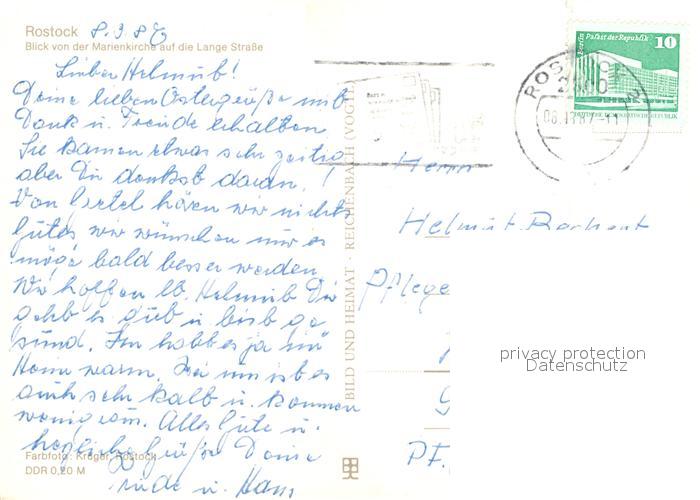 Rostock 8.3.87
Blick von der Marienkirche auf die Lange Straße
Lieber Helmut!
Deine lieben Ostergrüße mit
Dank u. Freude erhalten
Sie kamen etwas sehr zeitig
aber Du denkst daran!
Von hören wir nichts
gutes wir wünschen nur es
möge bald besser werden
Wir hoffen lb. Helmut Dir
geht es gut u. bist ge
sund. Ihr habt es ja im
Heim warm. Bei uns ist es
auch sehr kalt u. kommen
wenig raus. Alles Gute u.
herzliche Grüße Deine
u. Hans
Farbfoto: Krüger, Rostock
DDR 0,20 M
BILD UND HEIMAT · REICHENBACH (VOGTL)
ROSTOCK
2500
Berlin Palast der Republik
10
DEUTSCHE DEMOKRATISCHE REPUBLIK
Herrn
Helmut
Pflege
privacy protection
Datenschutz